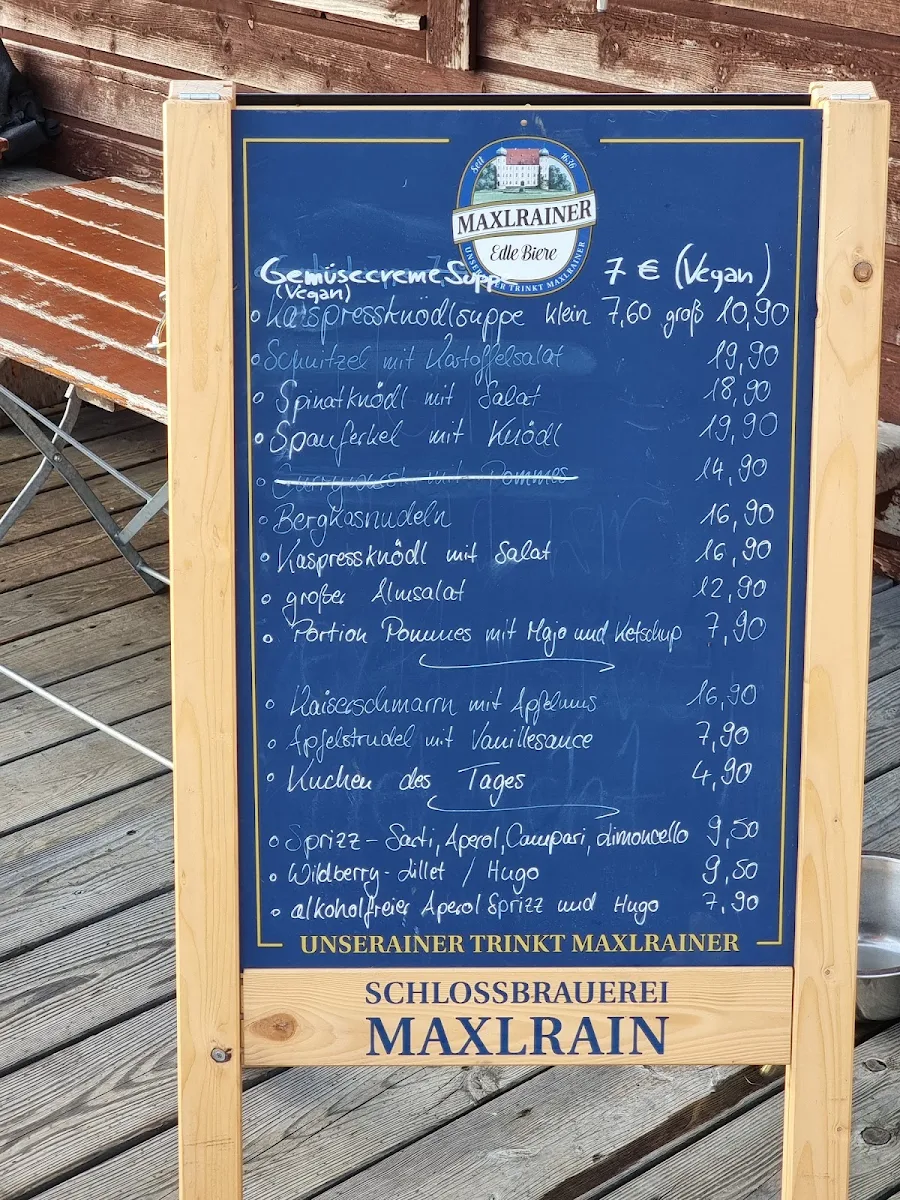 seit 1636
MAXLRAINER
Edle Biere
UNSERAINER TRINKT MAXLRAINER
Gemüsecreme Suppe 7 € (Vegan)
(Vegan)
Kaspressknödlsuppe klein 7,60 groß 10,90
Schnitzel mit Kartoffelsalat 19,90
Spinatknödl mit Salat 18,90
Spanferkel mit Knödl 19,90
Currywurst mit Pommes 14,90
Bergkasnudeln 16,90
Kaspressknödl mit Salat 16,90
großer Almsalat 12,90
Portion Pommes mit Majo und Ketschup 7,90
Kaiserschmarrn mit Apfelmus 16,90
Apfelstrudel mit Vanillesauce 7,90
Kuchen des Tages 4,90
Sprizz - Sarti, Aperol, Campari, Limoncello 9,50
Wildberry - Lillet / Hugo 9,50
alkoholfreier Aperol Sprizz und Hugo 7,90
UNSERAINER TRINKT MAXLRAINER
SCHLOSSBRAUEREI
MAXLRAIN